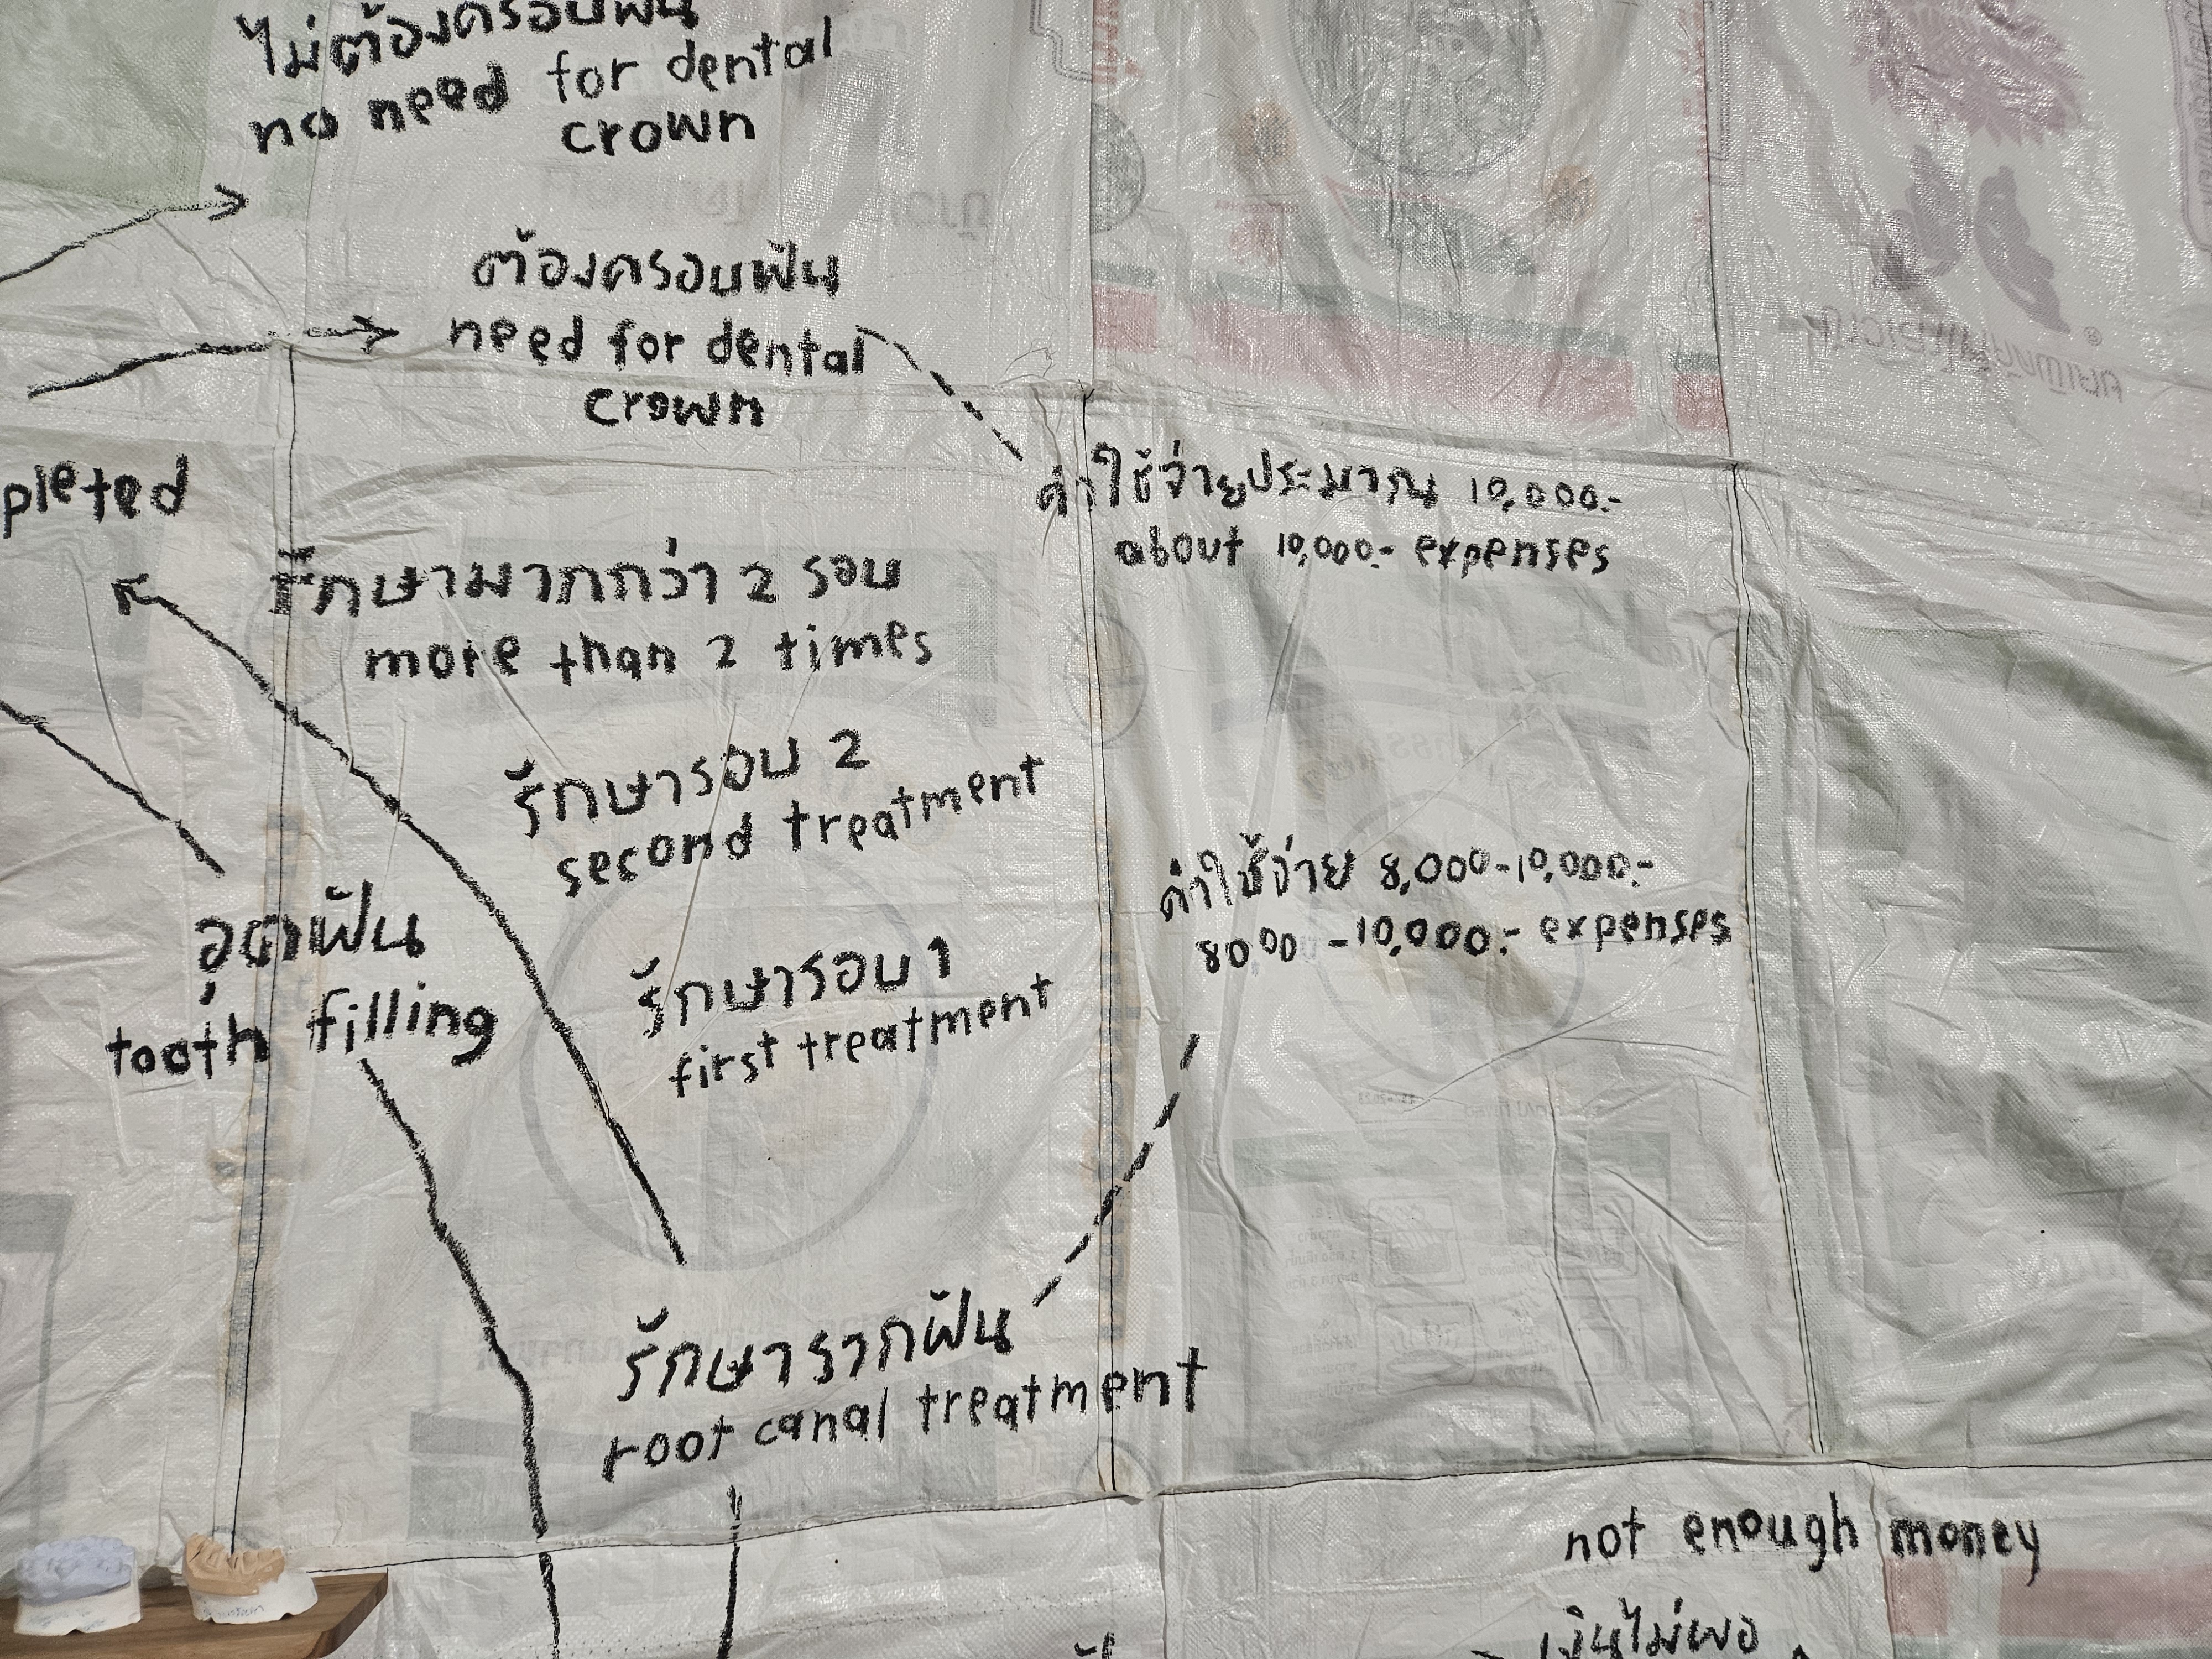 ไม่ต้องครอบฟัน
no need for dental
crown
ต้องครอบฟัน
need for dental
crown
ค่าใช้จ่ายประมาณ 10,000.-
about 10,000.- expenses
pleted
รักษามากกว่า 2 รอบ
more than 2 times
รักษารอบ 2
second treatment
ค่าใช้จ่าย 8,000-10,000.-
8000 -10,000.- expenses
อุดฟัน
tooth filling
รักษารอบ 1
first treatment
รักษารากฟัน
root canal treatment
not enough money
เงินไม่พอ